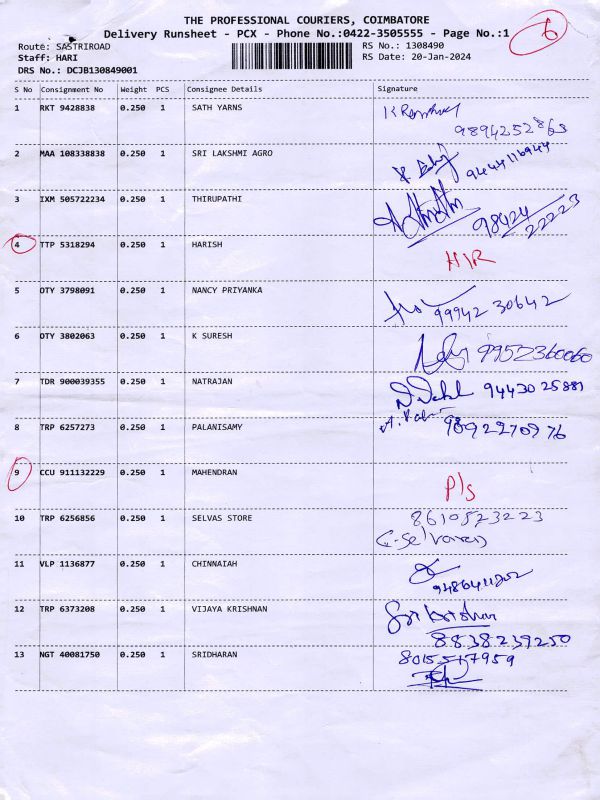 THE PROFESSIONAL COURIERS, COIMBATORE
Delivery Runsheet - PCX - Phone No.:0422-3505555 - Page No.:1
6
Route: SASTRIROAD RS No.: 1308490
Staff: HARI RS Date: 20-Jan-2024
DRS No.: DCJB130849001
S No Consignment No Weight PCS Consignee Details Signature
1 RKT 9428838 0.250 1 SATH YARNS
9894252863
2 MAA 108338838 0.250 1 SRI LAKSHMI AGRO
9444116944
3 IXM 505722234 0.250 1 THIRUPATHI
98424
22223
4 TTP 5318294 0.250 1 HARISH
H/R
5 OTY 3798091 0.250 1 NANCY PRIYANKA
99942 30642
6 OTY 3802063 0.250 1 K SURESH
9952360060
7 TDR 900039355 0.250 1 NATRAJAN
94430 25881
8 TRP 6257273 0.250 1 PALANISAMY
9892270976
9 CCU 911132229 0.250 1 MAHENDRAN
P/s
10 TRP 6256856 0.250 1 SELVAS STORE
8610523223
11 VLP 1136877 0.250 1 CHINNAIAH
12 TRP 6373208 0.250 1 VIJAYA KRISHNAN
Sri krishnan
8838239250
13 NGT 40081750 0.250 1 SRIDHARAN
8015517959